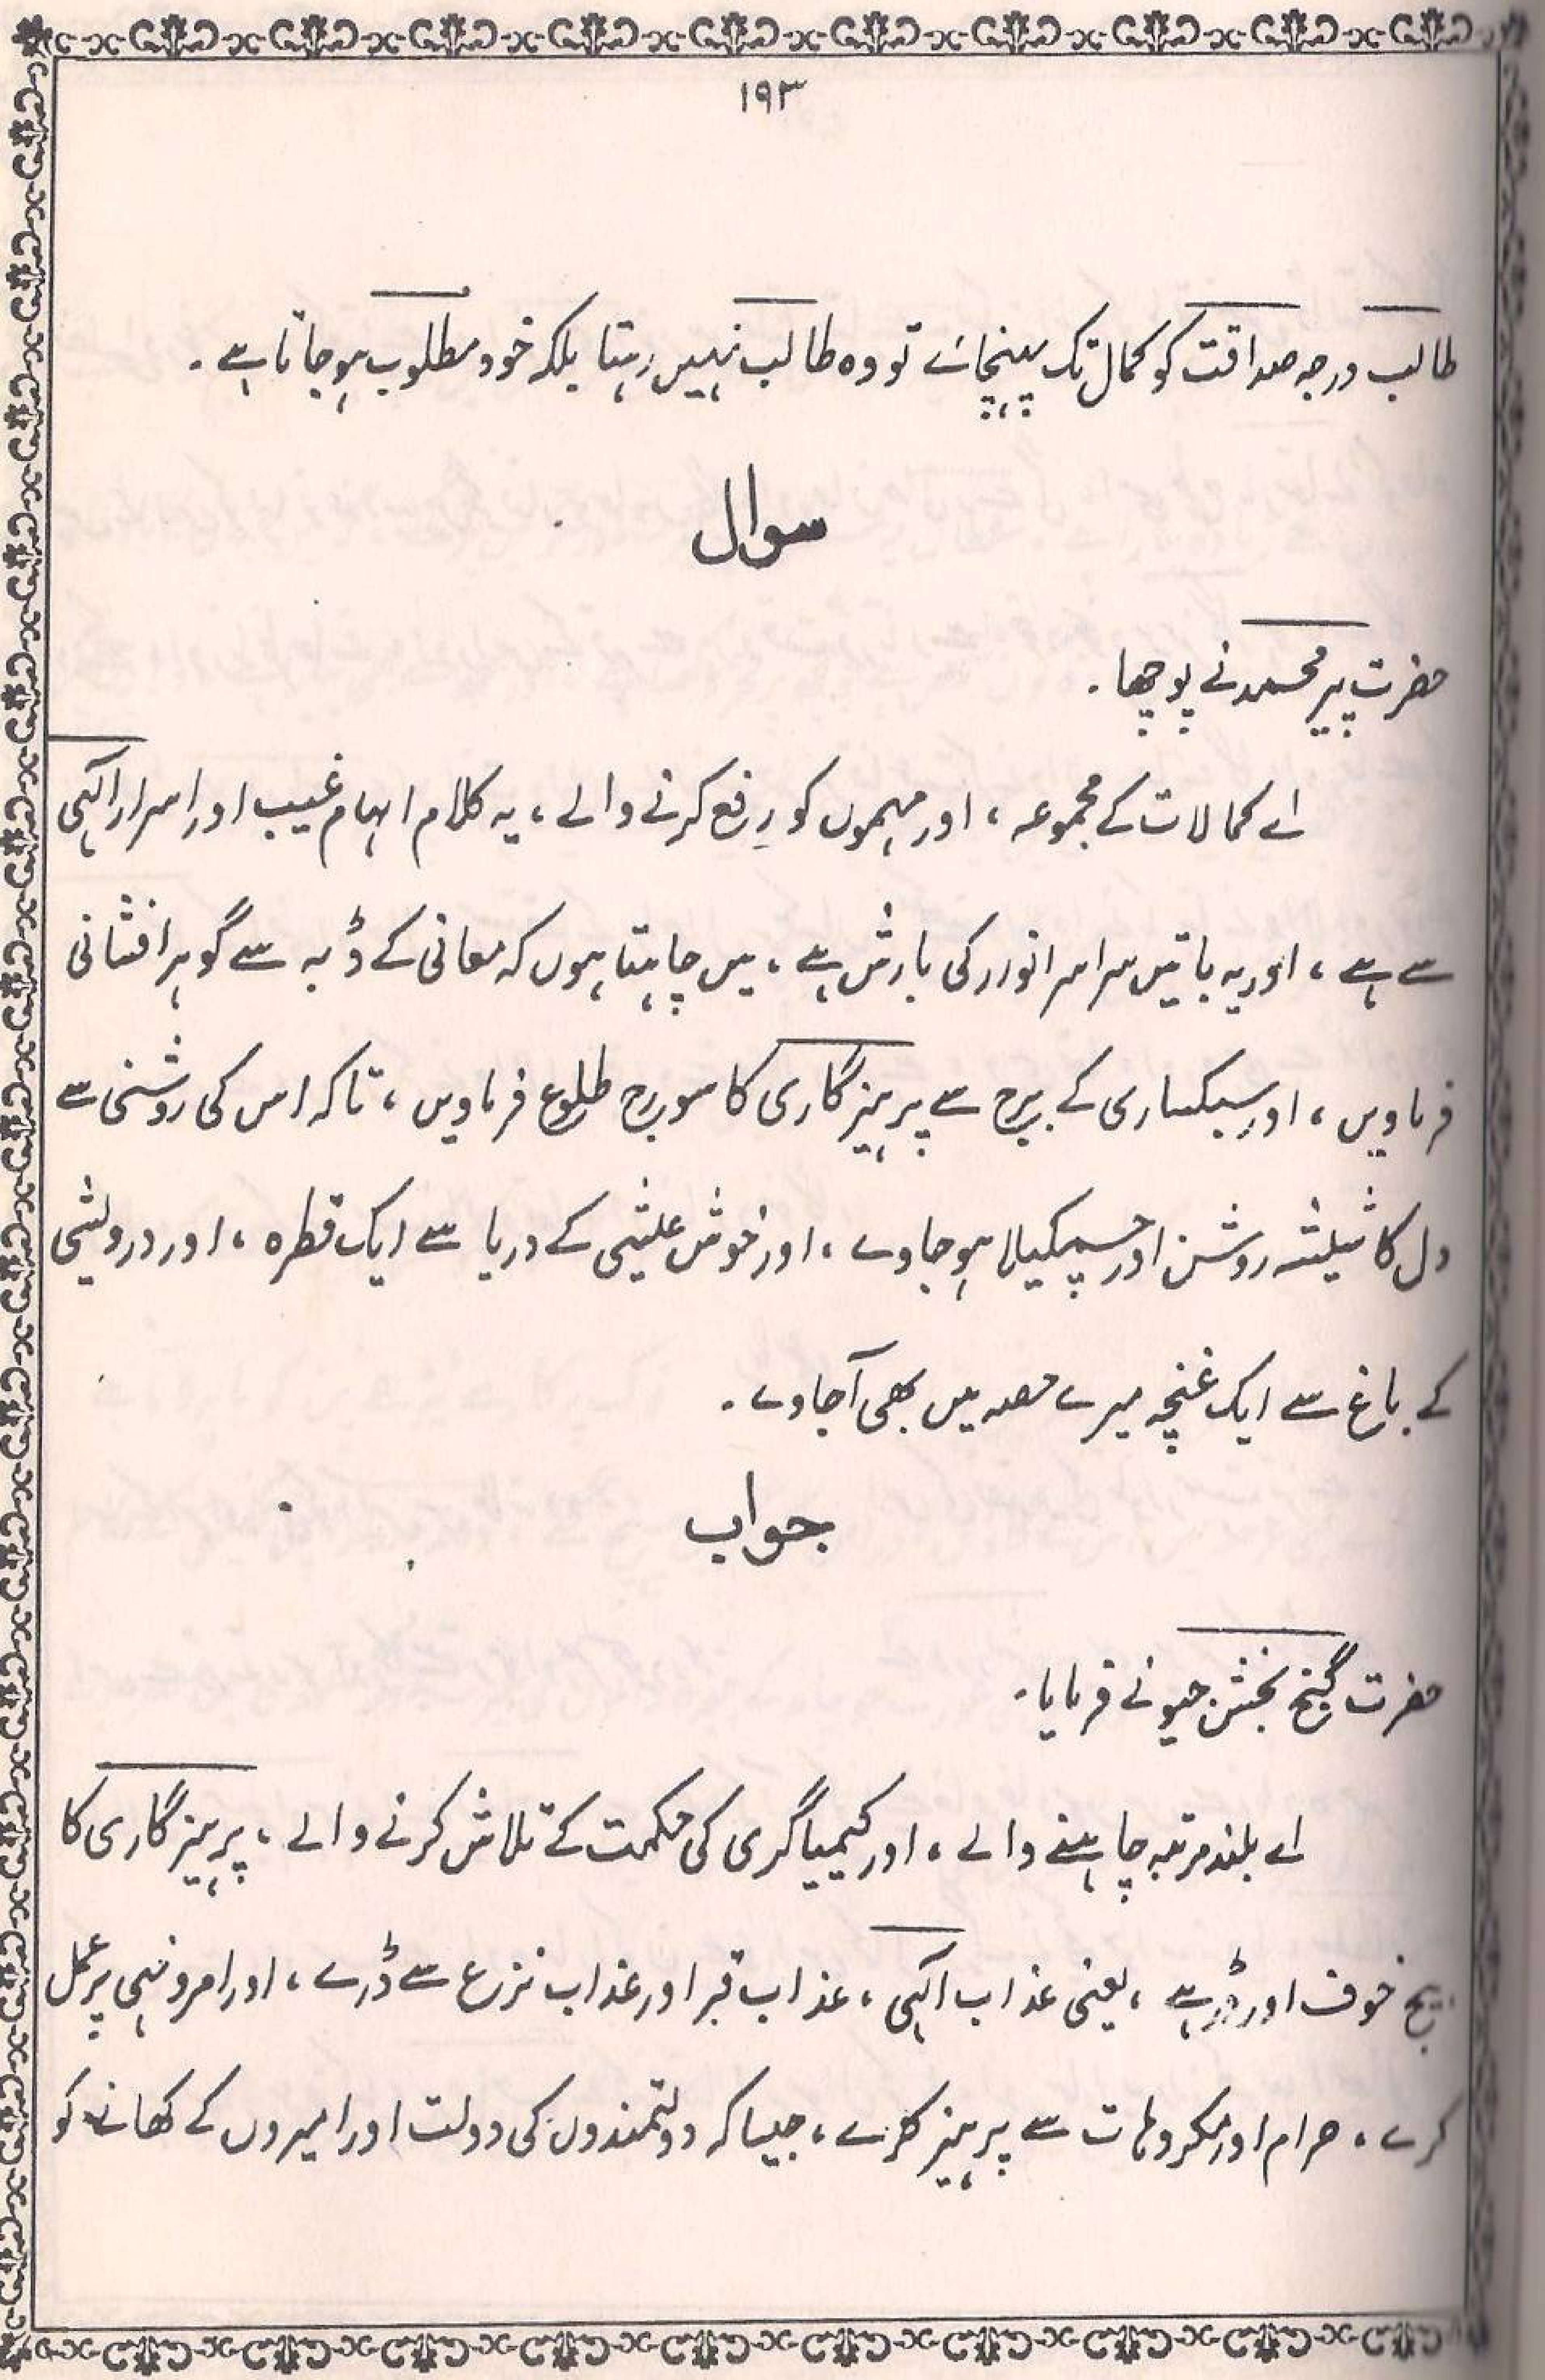 ۱۹۳
طالب درجہ صداقت کو کمال تک پہنچائے تو وہ طالب نہیں رہتا بلکہ خود مطلوب ہو جاتا ہے ۔
سوال
حضرت پیر محمد نے پوچھا ۔
اے کمالات کے مجموعہ ، اور مہموں کو رفع کرنے والے ، یہ کلام الہام غیب اور اسرار الٰہی
سے ہے ، اور یہ باتیں سراسر انوار کی بارش ہے ، میں چاہتا ہوں کہ معانی کے ڈبہ سے گوہر افشانی
فرماویں ، اور سبکساری کے برج سے پرہیز گاری کا سورج طلوع فرماویں ، تاکہ اس کی روشنی سے
دل کا شیشہ روشن اور چمکیلا ہو جاوے ، اور خوش عیشی کے دریا سے ایک قطرہ ، اور درویشی
کے باغ سے ایک غنچہ میرے حصہ میں بھی آجاوے ۔
جواب
حضرت گنج بخش جیو نے فرمایا ۔
اے بلند مرتبہ چاہنے والے ، اور کیمیاگری کی حکمت کے تلاش کرنے والے ، پرہیز گاری کا
بیج خوف اور ڈر ہے ، یعنی عذاب الٰہی ، عذاب قبر اور عذاب نزع سے ڈرے ، اور امر و نہی پر عمل
کرے ، حرام اور مکروہات سے پرہیز کرے ، جیسا کہ دولتمندوں کی دولت اور امیروں کے کھانے کو